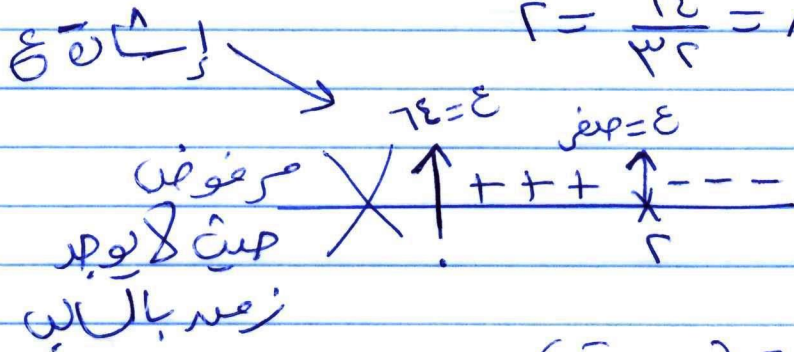 ٢ = ٦٤/٣٢ =
إشارة ع
ع=٦٤ ع=صفر
مرفوض + + + - - -
حيث لا يوجد ٠ ٢
زمن بالسالب